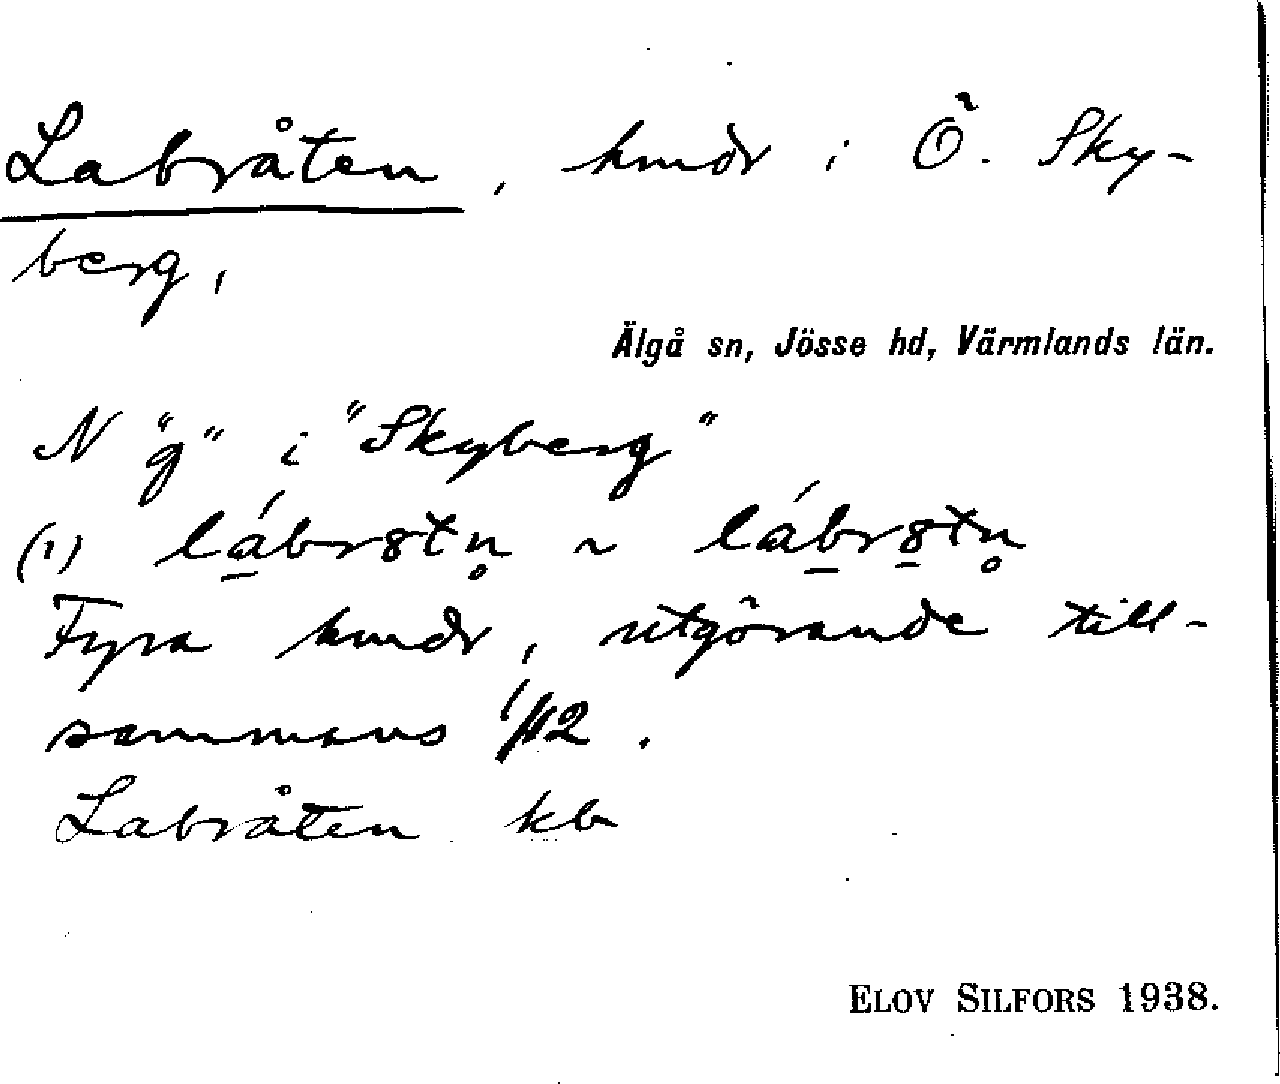 Labråten, hmdr i Ö. Sky-
berg,
Älgå sn, Jösse hd, Värmlands län.
N "g" i "Skyberg"
(1) lábr8tn̥ ~ láb̲r8̲tn̥
Fyra hmdr, utgörande till-
sammans 1/42.
Labråten kb
ELOV SILFORS 1938.